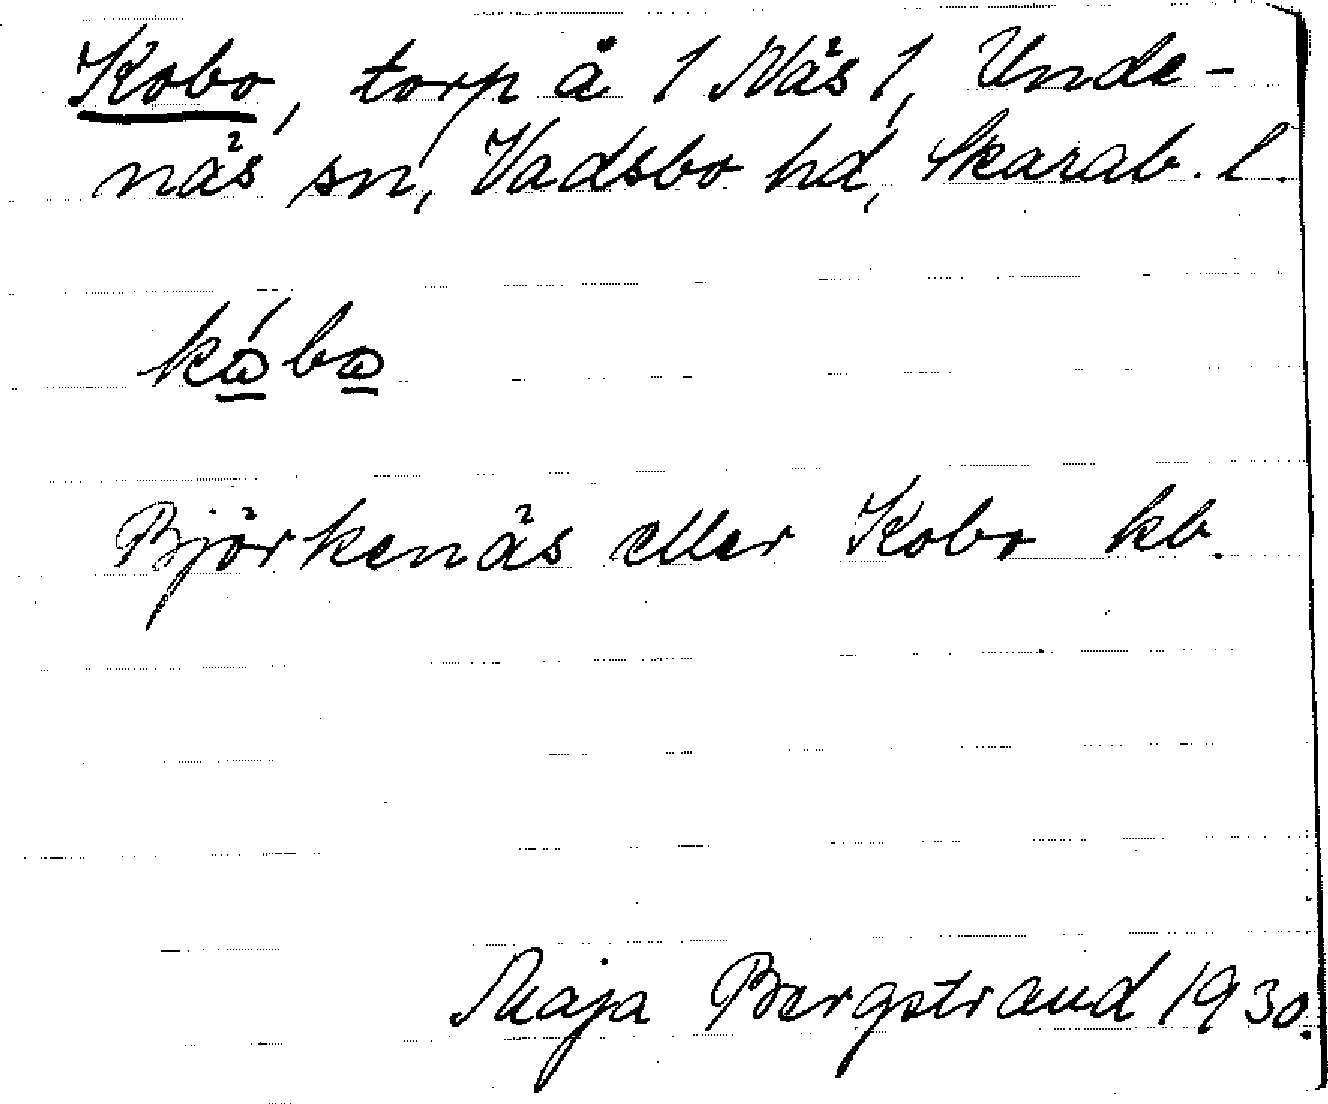 Kobo, torp å 1 Näs 1, Unde-
näs sn, Vadsbo hd, Skarab. l.
Björkenäs eller Kobo kb.
Maja Bergstrand 1930.